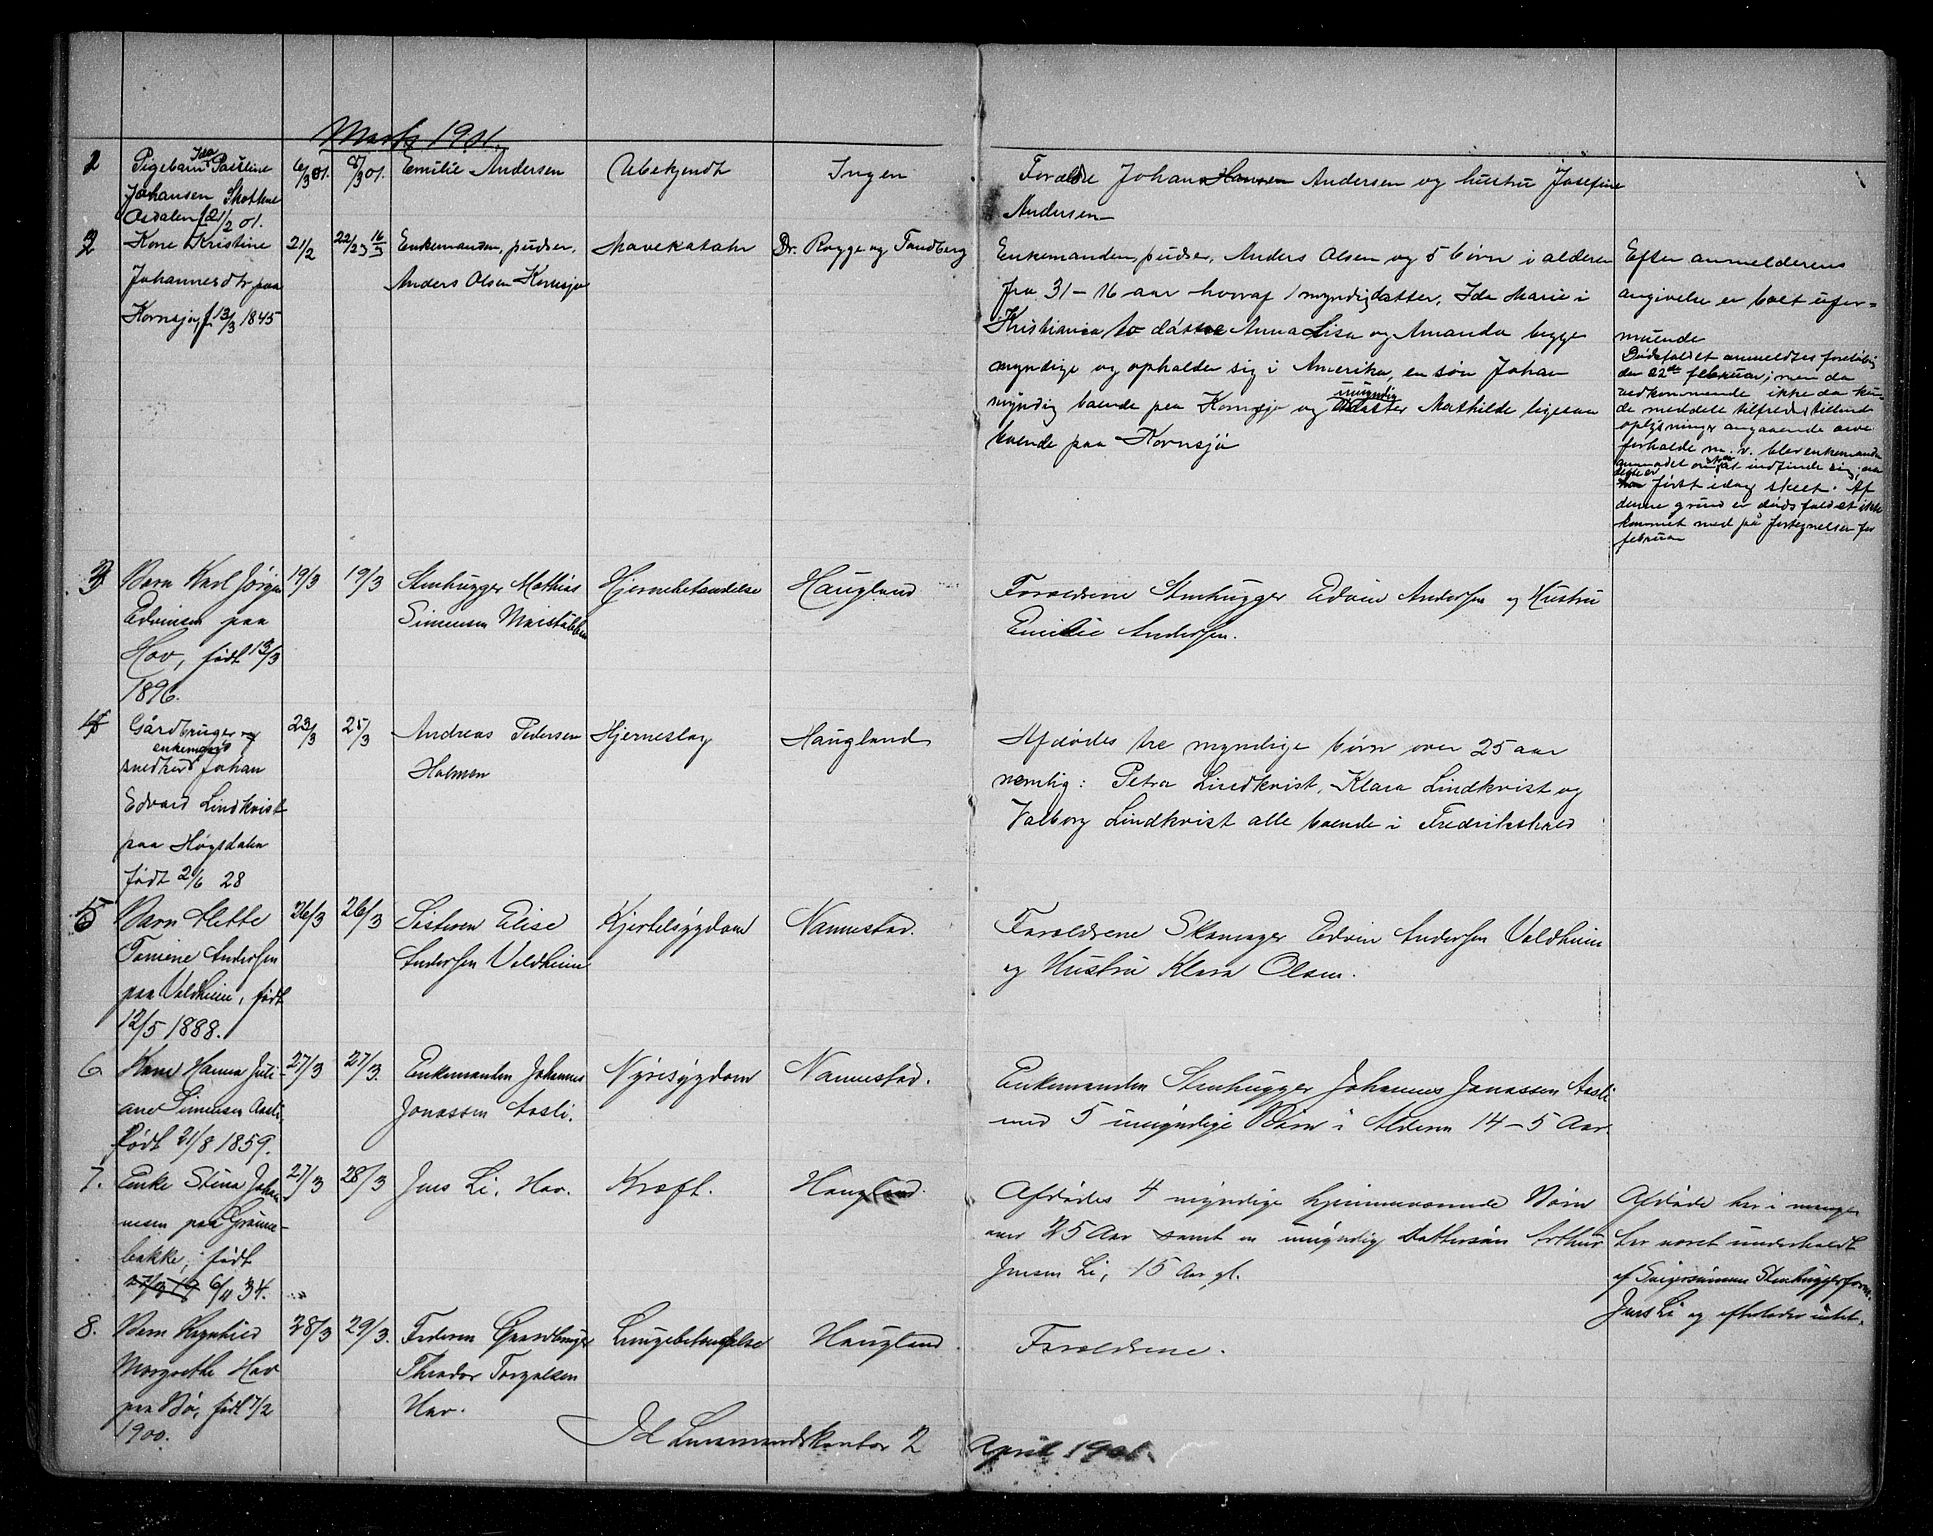 Marts 1901.
2 Pigebarn Ida Pauline 6/3 01. 8/3 01. Emilie Andersen Ubekjendt Ingen Foraldre Johan Hansen Andersen og hustru Josefine
Johansen
Asdalen f 21/2 01. Andersen
2 Kone Kristine 21/2 22/2 16/3 Enkemanden, pudser, Mavekatahr Dr. Rogge og Tandberg Enkemanden, pudser, Anders Olsen og 5 børn i alderen Efter anmelderens
Johannesdtr paa Anders Olsen Kornsjø fra 31-16 aar hvoraf 1 myndig datter, Ida Marie i angivelse er boet ufor=
Kornsjø, f 13/3 1845 Kristiania to døttre Anna Lisa og Amanda begge muende
myndige og opholder sig i Amerika, en søn Johan
myndig boende paa Kornsjø og umyndig datter Mathilde ligesaa
boende paa Kornsjø
Dødsfaldet anmeldtes foreløbig
den 22de februar, men da
vedkommende ikke da kun
de meddele tilfredsstillende
oplysninger angaaende arve
forholde m. v. blev enkemanden
anmodet om at indfinde sig,
dette er først idag skeet. Af
denne grund er dødsfaldet ikke
kommet med på fortegnelsen for
februar
3 Barn Karl Jørgen 19/3 19/3 Stenhugger Mathias Hjernebetændelse Haugland Forældrene Stenhugger Edvin Andersen og Hustru
Edvinsen paa Simensen Emilie Andersen.
Hov, født 13/3
1896.
4 Gårdbruger og 23/3 25/3 Andreas Pedersen Hjerneslag Haugland Afdødes tre myndige børn over 25 aar
enkemand
snedker Johan Holmen nemlig: Petra Lindkvist, Klara Lindkvist og
Edvard Lindkvist Valborg Lindkvist alle boende i Fredrikshald
paa Høgsdalen
født 2/6 28
5 Barn Mette 26/3 26/3 Søsteren Elise Kjertelsygdom Nannestad. Forældrene Skomager Edvin Andersen Voldheim
Tomine Andersen Andersen Voldheim og Hustru Klara Olsen.
paa Voldheim, født
12/5 1888.
6 Kone Hanna Juli- 27/3 27/3. Enkemanden Johannes Nyresygdom Nannestad. Enkemanden Stenhugger Johannes Jonassen Aasli
ane Simensen Aasli, Jonassen Aasli. med 5 umyndige Børn i Alderen 14-5 Aar.
født 21/8 1859.
7. Enke Stina Johan 27/3 28/3 Jens Li, Hov. Kræft. Haugland. Afdødes 4 myndige hjemmeværende Børn Afdøde har i mange
nesen paa Grønne- over 25 Aar samt en umyndig Dattersøn Arthur Aar været underholdt
bakke, født Jensen Li, 15 Aar gl. af Svigersønnen Stenhuggerform.
6/11 34. Jens Li og efterlader intet.
8. Barn Ragnhild 28/3 29/3. Faderen Gaardbruger Lungebetændelse Haugland Forældrene.
Margrethe Hov Theodor Torgalsen
paa Bø, født 7/2 Hov.
1900.
Id Lensmandskontor 2 April 1901.